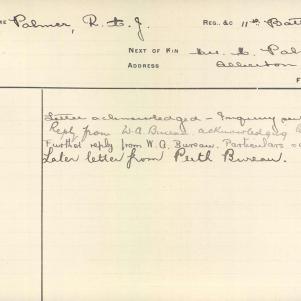 Palmer, R. G. J. Reg., &c 11th Batt
Next of Kin Mrs. E. Pal
Address Alberton
Letter acknowledged - Inquiry sen
Reply from W.A. Bureau acknowledging
Further reply from W.A. Bureau. Particulars
Later letter from Perth Bureau.